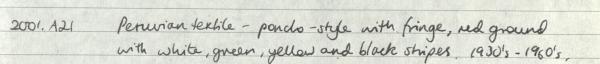 2001.A21 Peruvian textile - poncho-style with fringe, red ground
with white, green, yellow and black stripes. 1930's - 1960's.